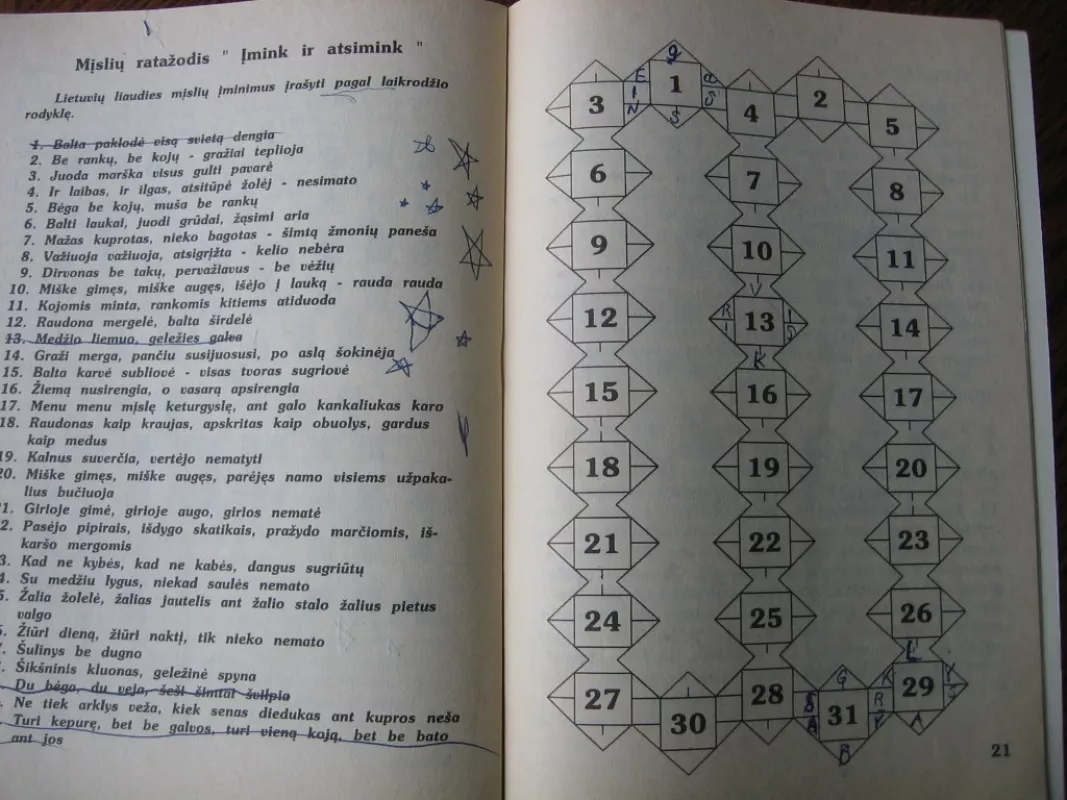 Mįslių ratažodis " Įmink ir atsimink "
Lietuvių liaudies mįslių įminimus įrašyti pagal laikrodžio
rodyklę.
1. Balta paklodė visą svietą dengia
2. Be rankų, be kojų - gražiai teplioja
3. Juoda marška visus gulti pavarė
4. Ir laibas, ir ilgas, atsitūpė žolėj - nesimato
5. Bėga be kojų, muša be rankų
6. Balti laukai, juodi grūdai, žąsimi aria
7. Mažas kuprotas, nieko bagotas - šimtą žmonių paneša
8. Važiuoja važiuoja, atsigrįžta - kelio nebėra
9. Dirvonas be takų, pervažiavus - be vėžių
10. Miške gimęs, miške augęs, išėjo į lauką - rauda rauda
11. Kojomis minta, rankomis kitiems atiduoda
12. Raudona mergelė, balta širdelė
13. Medžio liemuo, geležies galva
14. Graži merga, pančiu susijuosusi, po aslą šokinėja
15. Balta karvė subliovė - visas tvoras sugriovė
16. Žiemą nusirengia, o vasarą apsirengia
17. Menu menu mįslę keturgyslę, ant galo kankaliukas karo
18. Raudonas kaip kraujas, apskritas kaip obuolys, gardus
kaip medus
19. Kalnus suverčia, vertėjo nematyti
20. Miške gimęs, miške augęs, parėjęs namo visiems užpaka-
lius bučiuoja
1. Girioje gimė, girioje augo, girios nematė
2. Pasėjo pipirais, išdygo skatikais, pražydo marčiomis, iš-
karšo mergomis
3. Kad ne kybės, kad ne kabės, dangus sugriūtų
4. Su medžiu lygus, niekad saulės nemato
5. Žalia žolelė, žalias jautelis ant žalio stalo žalius pietus
valgo
. Žiūri dieną, žiūri naktį, tik nieko nemato
. Šulinys be dugno
. Šikšninis kluonas, geležinė spyna
Du bėga, du veja, šeši šimtai švilpia
Ne tiek arklys veža, kiek senas diedukas ant kupros neša
Turi kepurę, bet be galvos, turi vieną koją, bet be bato
ant jos
3 E I N 1 S 4 2 5
6 7 8
9 10 11
12 R I 13 I S 14
K
15 16 17
18 19 20
21 22 23
24 25 26
L
27 30 28 S A G 31 B R Y K 29 Y S A
21